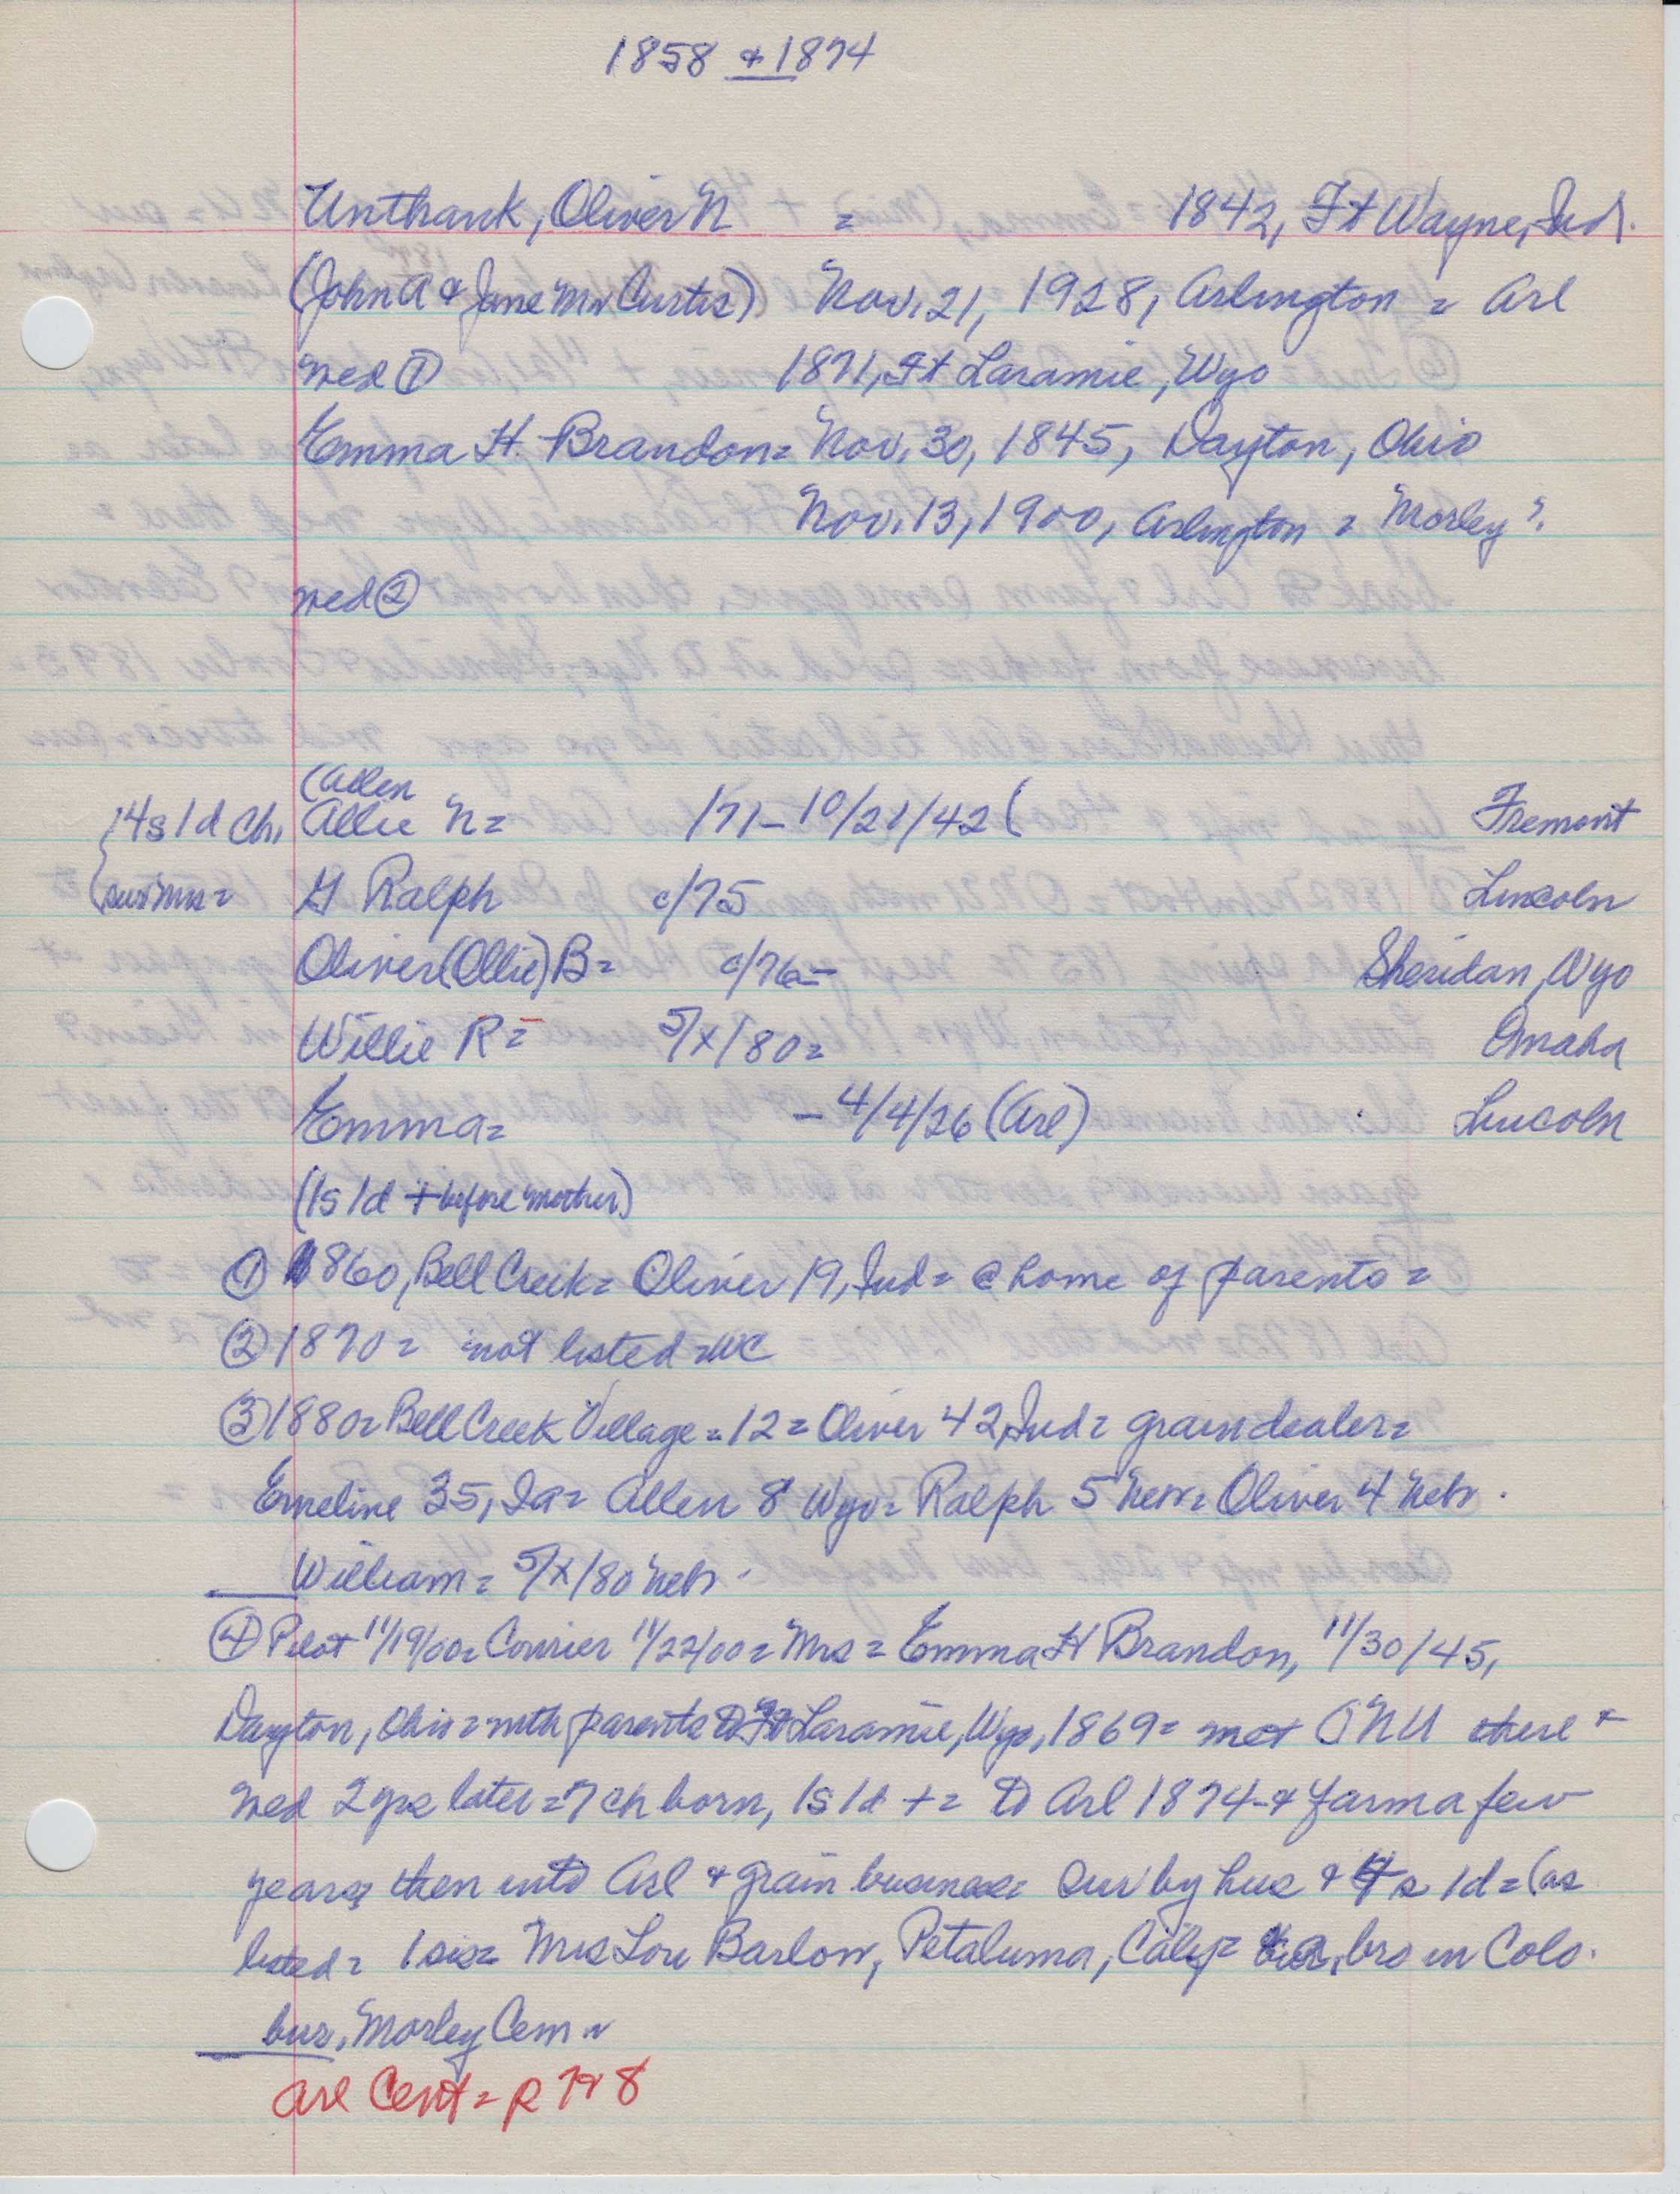 1858 & 1874
Unthank, Oliver N = 1842, Ft Wayne, Ind.
(John A & Jane Mn Curtis) Nov. 21, 1928, Arlington = Arl
wed ① 1871, Ft Laramie, Wyo
Emma H. Brandon = Nov. 30, 1845, Dayton, Ohio
Nov. 13, 1900, Arlington = Morley ?.
wed ②
(Allen
4s 1d Ch. Allie N = /71 - 10/21/42 ( Fremont
sur Mrs = G Ralph c/75 Lincoln
Oliver (Ollie) B = c/76 = Sheridan, Wyo
Willie R = 5/X/80 = Omaha
Emma = - 4/4/26 (Arl) Lincoln
(1s 1d + before mother)
① 1860, Bell Creek = Oliver 19, Ind = @ home of parents =
② 1870 = not listed = WC
③ 1880 = Bell Creek Village = 12 = Oliver 42, Ind = grain dealer =
Emeline 35, Ia = Allen 8 Wyo = Ralph 5 Nebr = Oliver 4 Nebr.
William = 5/X/80 Nebr.
④ Pilot 11/19/00 = Courier 11/22/00 = Mrs = Emma H Brandon, 11/30/45,
Dayton, Ohio = with parents to Ft Laramie, Wyo, 1869 = met ONU there &
wed 2 yrs later = 7 ch born, 1s 1d + = to Arl 1874 & farm a few
years, then into Arl & grain business sur by hus & 4 s 1d = (as
listed = 1 sis = Mrs Lou Barlow, Petaluma, Calif = bro in Colo.
bur. Morley Cem =
Arl Cent = p 7 & 8